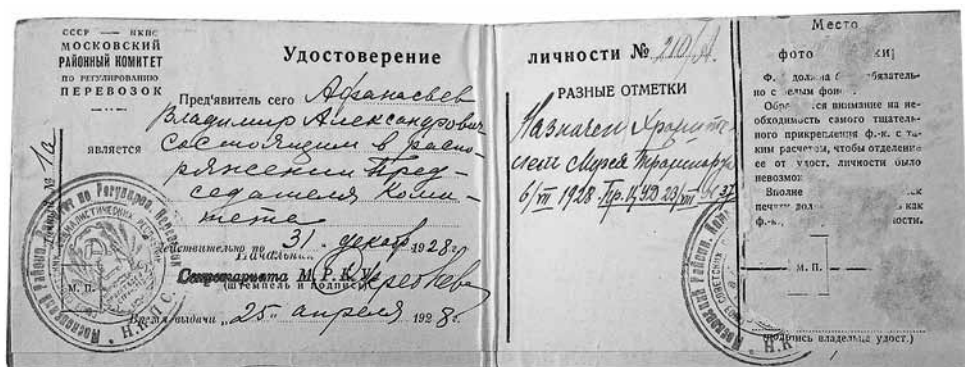 СССР — НКПС
МОСКОВСКИЙ
РАЙОННЫЙ КОМИТЕТ
ПО РЕГУЛИРОВАНИЮ
ПЕРЕВОЗОК
Удостоверение
Пред'явитель сего Афанасьев
Владимир Александрович
является состоящим в распо-
ряжении Пред-
седателя Коми-
тета
№ 1а
Действительно по 31. декабр 1928 г.
Начальник
Секретариата М. Р. К. У.
(штемпель и подпись)
М. П.
Время выдачи „25" апреля 1928 г.
Московский Район. Комитет по Регулиров. Перевозок
Н.К.П.С.
личности № 210/А.
РАЗНЫЕ ОТМЕТКИ
Назначен Храните-
лем Музея
6/VII 1928. Пр. 23/VII № 37
Место
фото
Ф. должна обязатель-
но с белым фоном.
внимание на не-
обходимость самого тщатель-
ного прикрепления ф.-к. с та-
ким расчетом, чтобы отделение
ее от удост. личности было
невозмож
Вполне
печати как
ф.-к.
М. П.
(подпись владельца удост.)